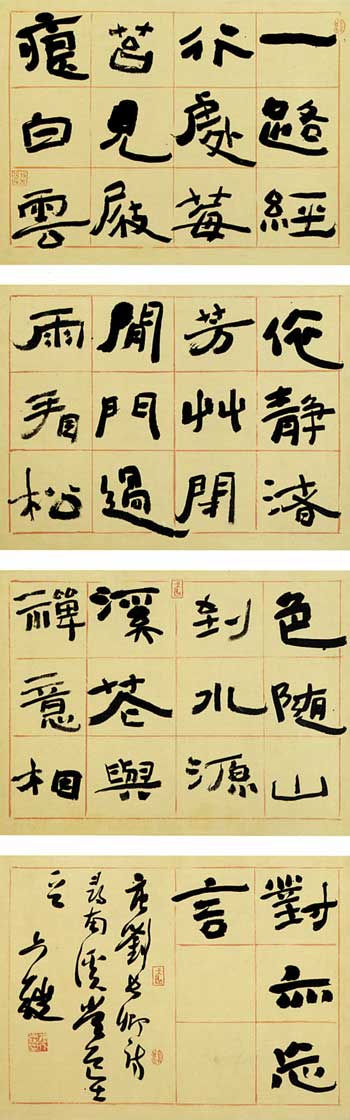 一路經
行處莓
苔見屐
痕白雲
依静渚
芳艸閉
閒門過
雨看松
色随山
到水源
溪花與
禪意相
對亦忘
言
唐劉長卿詩
尋南溪常道士